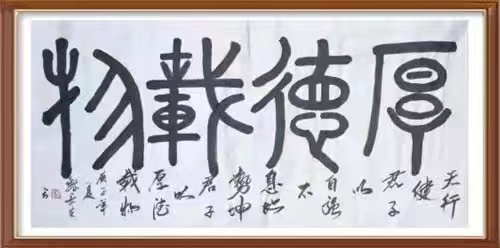 厚德載物
天行
健
君子
以
自强
不
息地
勢坤
君子
以
厚德
載物
年
夏